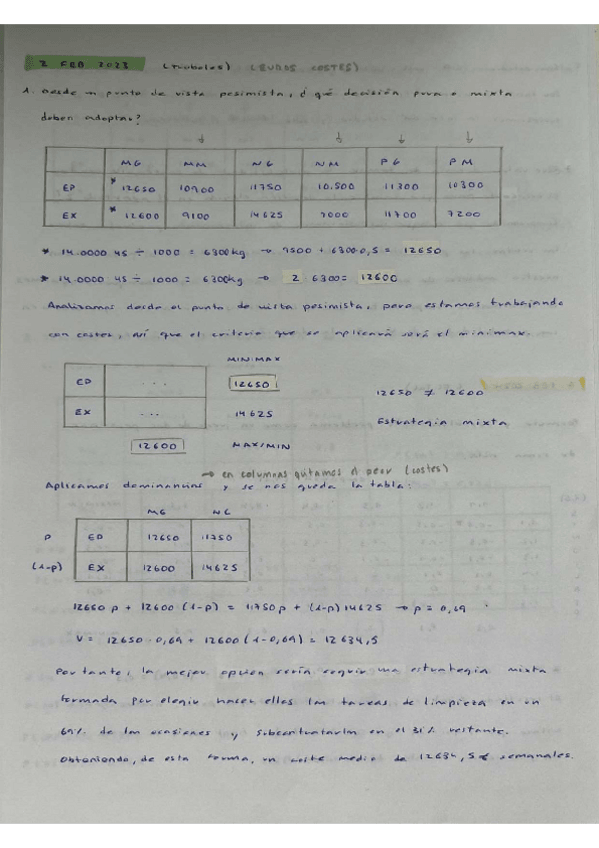 2 FEB 2023 (Tubales) (EUROS COSTES)
1. Desde un punto de vista pesimista, ¿ qué decisión pura o mixta
deben adoptar?
MG MM NG NM PG PM
EP * 12650 10900 11750 10.500 11300 10300
EX * 12600 9100 14625 7000 11700 7200
* 14.0000 45 ÷ 1000 = 6300kg → 9500 + 6300·0,5 = 12650
* 14.0000 45 ÷ 1000 = 6300kg → 2·6300= 12600
Analizamos desde el punto de vista pesimista, pero estamos trabajando
con costes, así que el criterio que se aplicará será el minimax.
MINIMAX
EP ... 12650
12650 ≠ 12600
EX ... 14625
Estrategia mixta
12600 MAXIMIN
→ en columnas quitamos el peor (costes)
Aplicamos dominancias y se nos queda la tabla:
MG NG
P EP 12650 11750
(1-P) EX 12600 14625
12650 p + 12600 (1-p) = 11750p + (1-p) 14625 → p = 0,69
V = 12650 · 0,69 + 12600 (1-0,69) = 12634,5
Por tanto, la mejor opción sería seguir una estrategia mixta
formada por elegir hacer ellos las tareas de limpieza en un
69% de las ocasiones y subcontratarlas en el 31% restante.
Obteniendo, de esta forma, un coste medio de 12634,5€ semanales.